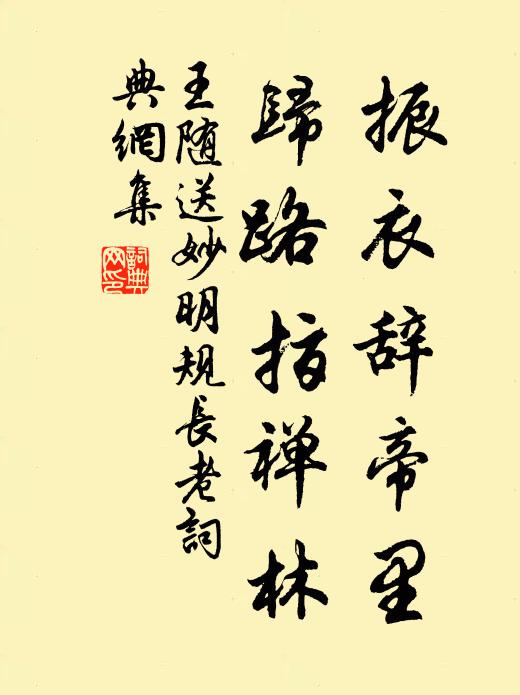 振衣辞帝里
歸路指禅林
王随送妙明規長老詞
典網集
詞典
网印